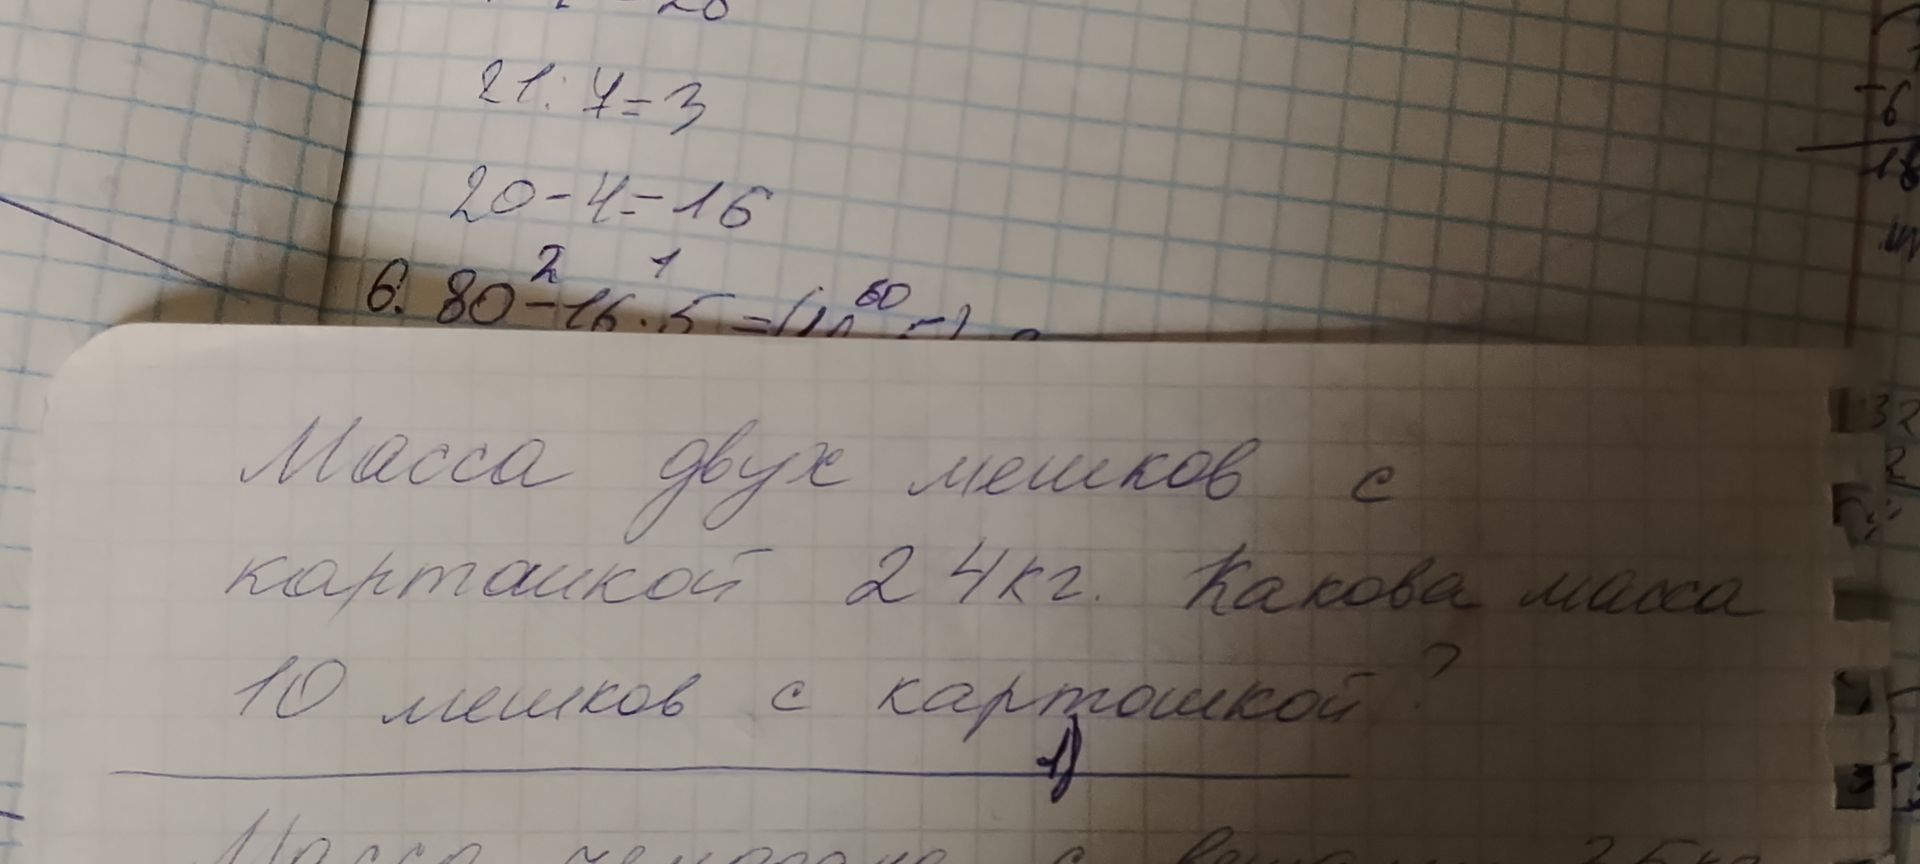 21:7=3
20-4=16
2 1 60
6. 80-16·5=(
Масса двух мешков с
картошкой 24кг. Какова масса
10 мешков с картошкой?
1)
Масса с